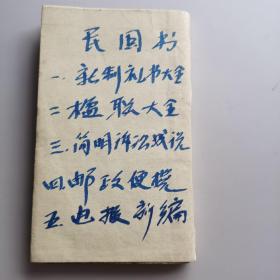 民国书
一、新制礼书大全
二、楹联大全
三、简明诉讼浅说
四、邮政便览
五、电报新编